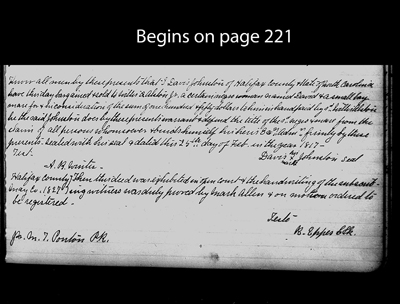 Begins on page 221
Know all men by these presents that I Davis Johnston of Halifax County & State of North Carolina
have this day bargained sold to Willis Alston Jr. a certain negro woman named David & a small bay
mare for & in consideration of the sum of one hundred & fifty dollars to him in hand paid by sd. Willis Alston
he the said Johnston does by these presents warrant & defend the title of the sd. negro & mare from the
claim of all persons whomsoever & binds himself his heirs Exrs. Admrs. firmly by these
presents. sealed with his seal & dated this 25th day of Feb. in the year 1817
Test. Davis Johnston seal
A. H. White
Halifax County } Then this deed was exhibited in open court & the handwriting of the subscrib-
May Co. 1827 } ing witness was duly proved by Mark Allen & on motion ordered to
be registered.
Teste
Jas. M. T. Ponton P.R. R. Eppes Clk.